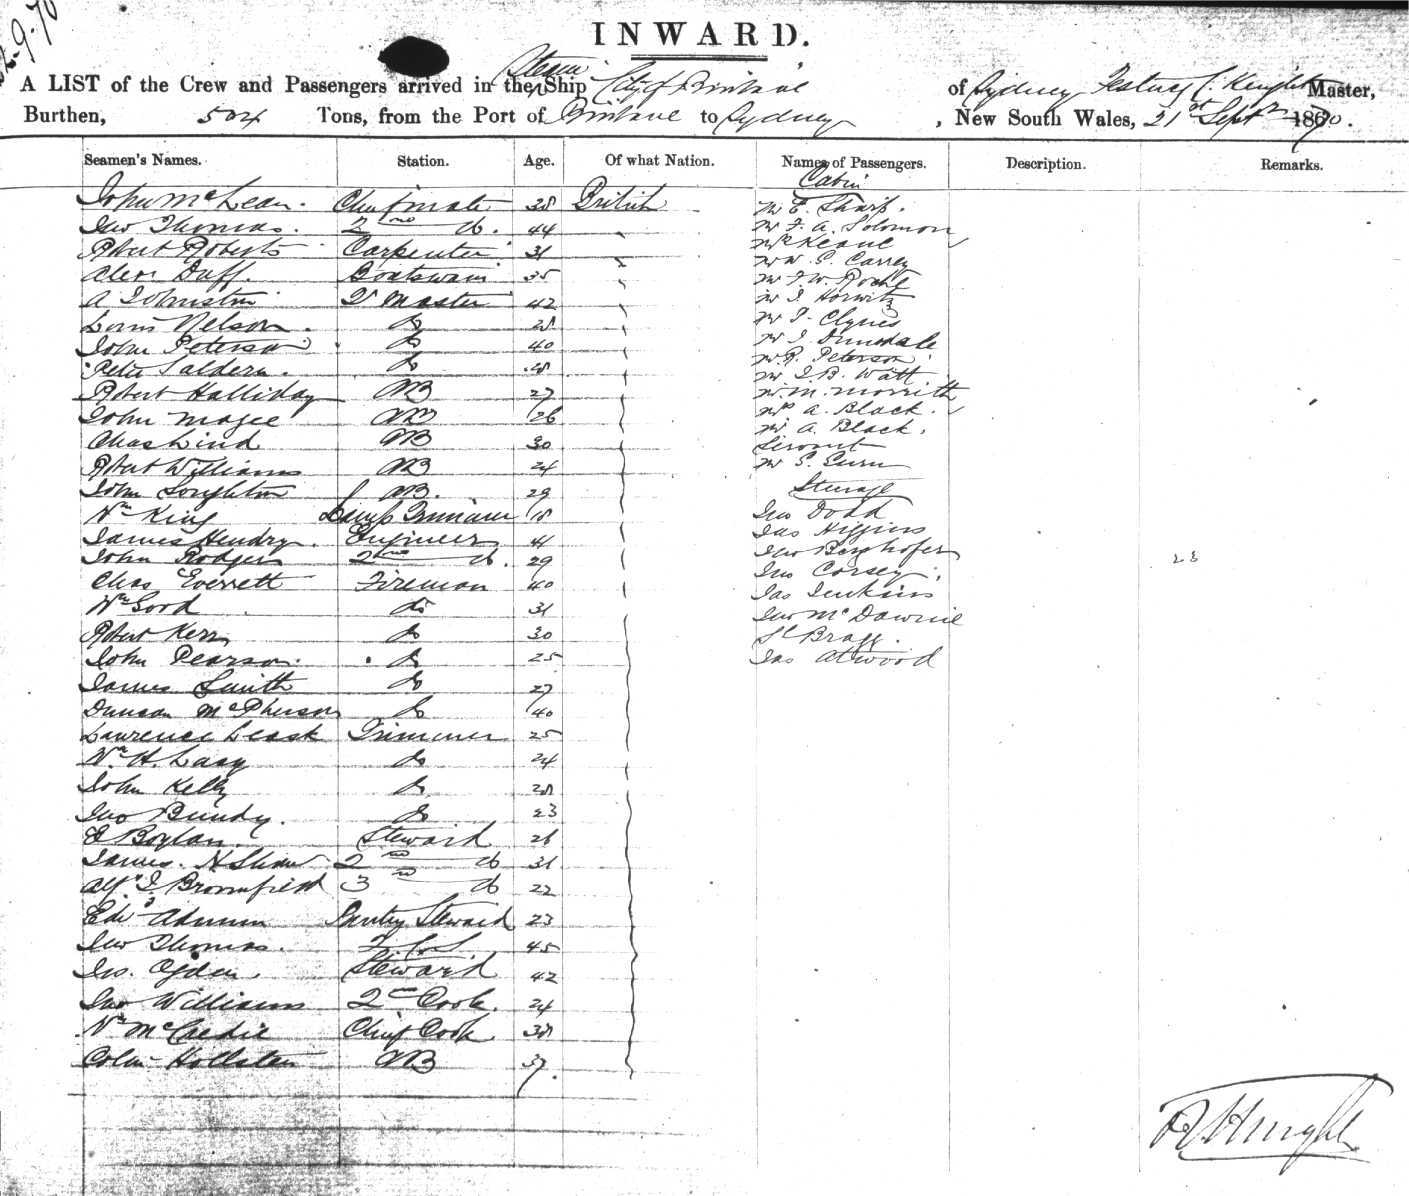 2.9.70
INWARD.
A LIST of the Crew and Passengers arrived in the Steam Ship City of Brisbane of Sydney Knight Master,
Burthen, 504 Tons, from the Port of Brisbane to Sydney, New South Wales, 21st Septr 1870.
Seamen's Names. Station. Age. Of what Nation. Names of Passengers. Description. Remarks.
Cabin
John McLean. Chief mate 38 British Mr E. Sharp.
Jno Thomas. 2nd do. 44 Mr F. A. Solomon
Robert Roberts Carpenter 31 Mrs Keane
Alexr Duff. Boatswain 35 Carrey
A Johnston Qr Master 42 Mr F. W. Roche
Louis Nelson. do 28 Mr J Horwitz
John Peterson do 40 Mr P. Clynes
Peter Saldern. do 28 Mr J. Dunsdale
Robert Halliday AB 27 Mr P. Peterson
John Magee AB 26 Mr J. B. Watt
Chas Lind AB 30 Mr M.
Robert Williams AB 24 Mrs A. Black.
John AB. 29 Mr A. Black.
Wm King Lamp Trimmer 18 Servant
James Hendry. Engineer 41 Mr
John Rodger 2nd do. 29 Steerage
Chas Everett Fireman 40 Jno Dodd
Wm do 31 Jas Higgins
Robert Kerr do 30 Jno Berghofer
John Pearson. do 25 Jno Corsey.
James Smith do 27 Jas Jenkins
Duncan McPherson do 40 Jno
Lawrence Leask Trimmer 25 Bragg.
Wm H. Lacy do 24 Jas Atwood
John Kelly do 28
Jno Bundy. do 23
E Boylan. Steward 26
James. N Shaw 2nd do 31
Alfd J. Bromfield 3rd do 22
Edwd Pantry Steward 23
Jno Thomas. 45
Jos. Ogden Steward 42
Jno Williams 2nd Cook. 24
Wm Chief Cook 38
Colin AB 37.
28
Knight